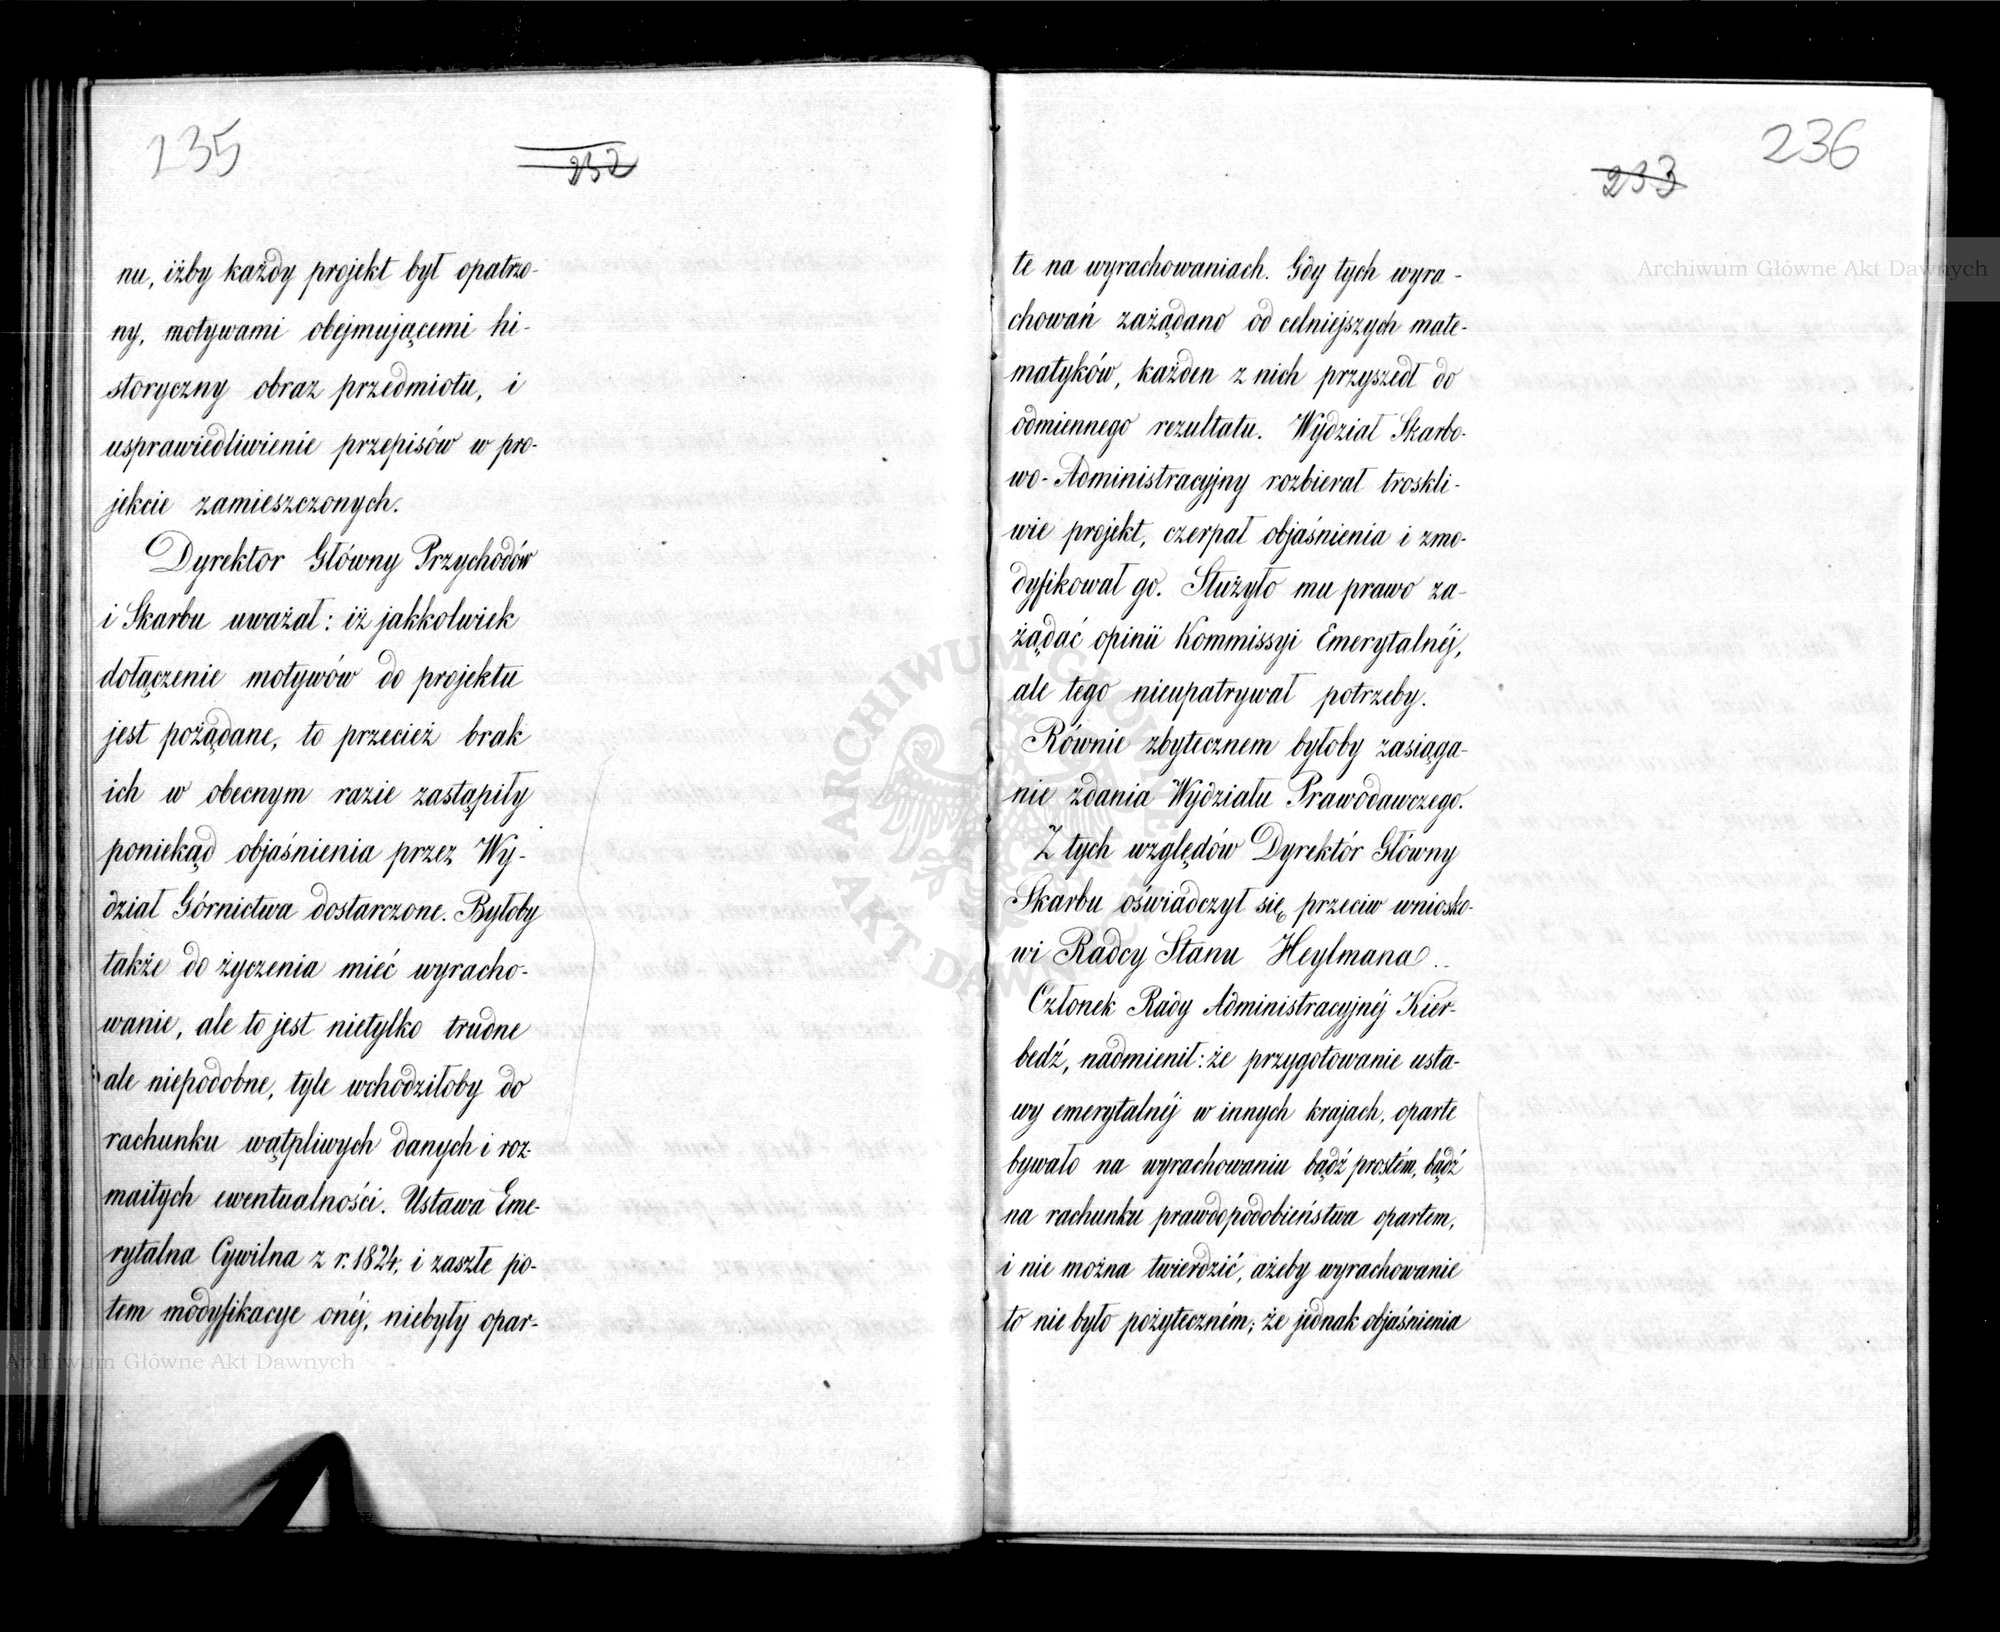 235
232
nu, iżby każdy projekt był opatrzo-
ny, motywami obejmującemi hi-
storyczny obraz przedmiotu, i
usprawiedliwienie przepisów w pro-
jekcie zamieszczonych.
Dyrektor Główny Przychodów
i Skarbu uważał: iż jakkolwiek
dołączenie motywów do projektu
jest pożądane, to przecież brak
ich w obecnym razie zastąpiły
poniekąd objaśnienia przez Wy-
dział Górnictwa dostarczone. Byłoby
także do życzenia mieć wyracho-
wanie, ale to jest nietylko trudne
ale niepodobne, tyle wchodziłoby do
rachunku wątpliwych danych i roz-
maitych ewentualności. Ustawa Eme-
rytalna Cywilna z r. 1824, i zaszłe po-
tem modyfikacye onéj, niebyły opar-
Archiwum Główne Akt Dawnych
236
233
Archiwum Główne Akt Dawnych
te na wyrachowaniach. Gdy tych wyra-
chowań zażądano od celniejszych mate-
matyków, każden z nich przyszedł do
odmiennego rezultatu. Wydział Skarbo-
wo-Administracyjny rozbierał troskli-
wie projekt, czerpał objaśnienia i zmo-
dyfikował go. Służyło mu prawo za-
żądać opinii Kommissyi Emerytalnéj,
ale tego nieupatrywał potrzeby.
Równie zbytecznem byłoby zasiąga-
nie zdania Wydziału Prawodawczego.
Z tych względów Dyrektór Główny
Skarbu oświadczył się przeciw wniosko-
wi Radcy Stanu Heylmana.
Członek Rady Administracyjnéj Kier-
bedź, nadmienił: że przygotowanie usta-
wy emerytalnéj w innych krajach, oparte
bywało na wyrachowaniu bądź prostém, bądź
na rachunku prawdopodobieństwa opartem,
i nie można twierdzić, ażeby wyrachowanie
to nie było pożyteczném; że jednak objaśnienia
ARCHIWUM GŁÓWNE
AKT DAWNYCH